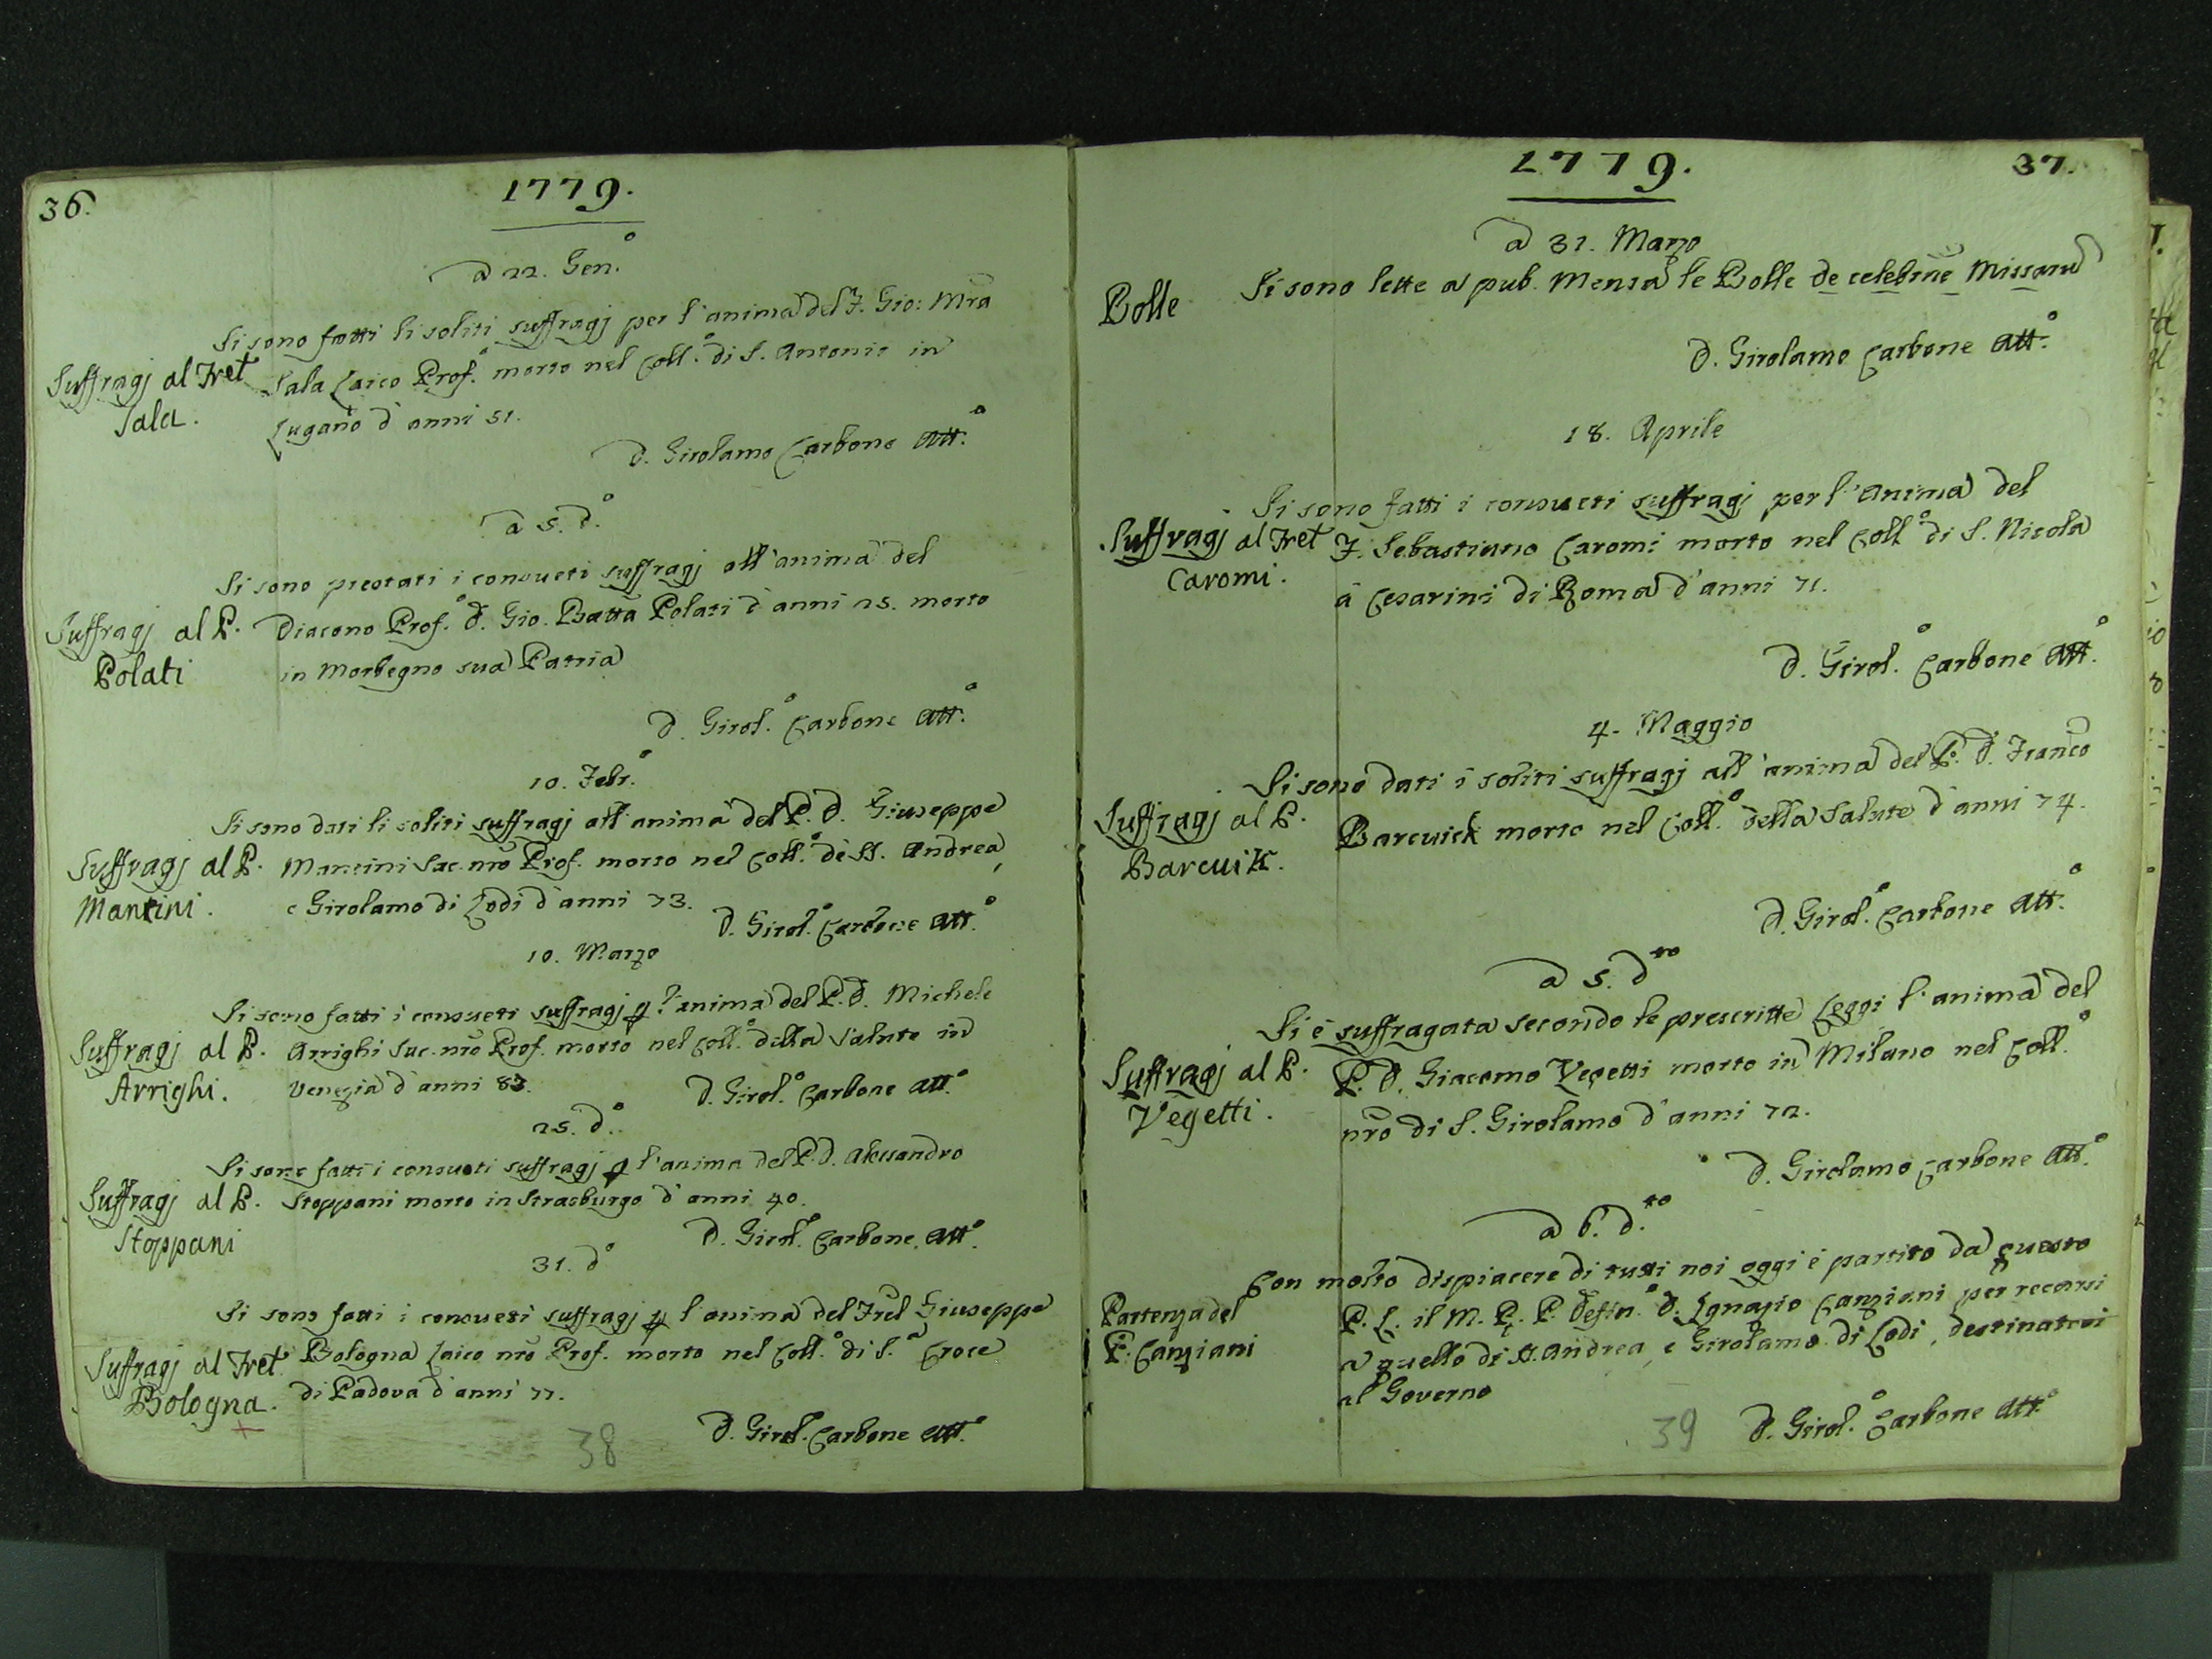 36.
1779.
a 22. Gen.o
Si sono fatti li soliti suffragj per l'anima del F. Gio: Mra
Suffragj al Fret Sala.
Sala Laico Prof.o morto nel Coll.o di S. Antonio in
Lugano d'anni 51.
D. Girolamo Carbone Att.o
a 25. d.o
Si sono prestati i consueti suffragj all'anima del
Suffragj al P. Polati
Diacono Prof.o D. Gio. Batta Polati d'anni 25. morto
in Morbegno sua Patria
D. Girol.o Carbone Att.o
10. Febr.o
Si sono dati li soliti suffragj all'anima del P. D. Giuseppe
Suffragj al P. Mantini.
Mantini Sac. nro Prof. morto nel Coll.o de SS. Andrea,
e Girolamo di Lodi d'anni 73.
D. Girol.o Carbone Att.o
10. Marzo
Si sono fatti i consueti suffragj p l'anima del P. D. Michele
Suffragj al P. Arrighi.
Arrighi Sac. nro Prof. morto nel Coll.o della Salute in
Venezia d'anni 83.
D. Girol.o Carbone Att.o
25. d.o
Si sono fatti i consueti suffragj p l'anima del P. D. Alessandro
Suffragj al P. Stoppani
Stoppani morto in Strasburgo d'anni 40.
D. Girol.o Carbone Att.o
31. d.o
Si sono fatti i consueti suffragj p l'anima del Frel Giuseppe
Suffragj al Fret Bologna.
Bologna Laico nro Prof. morto nel Coll.o di S.a Croce
di Padova d'anni 77.
D. Girol.o Carbone Att.o
38
1779.
37.
a 31. Marzo
Bolle
Si sono lette a pub. Mensa le Bolle de celebrne Missaru
D. Girolamo Carbone Att.o
18. Aprile
Si sono fatti i consueti suffragj per l'anima del
Suffragj al Fret Caromi.
F. Sebastiano Caromi morto nel Coll.o di S. Nicola
a Cesarini di Roma d'anni 71.
D. Girol.o Carbone Att.o
4. Maggio
Si sono dati i soliti suffragj all'anima del P. D. Franco
Suffragj al P. Barcuik.
Barcuick morto nel Coll.o della Salute d'anni 74.
D. Girol.o Carbone Att.o
a 5. d.to
Si è suffragata secondo le prescritte Leggi l'anima del
Suffragj al P. Vegetti.
P. D. Giacomo Vegetti morto in Milano nel Coll.o
nro di S. Girolamo d'anni 72.
D. Girolamo Carbone Att.o
a 6. d.to
Con molto dispiacere di tutti noi oggi è partito da questo
Partenza del P. Canziani
P. L. il M. R. P. Defin.o D. Ignazio Canziani per recarsi
a quello di SS. Andrea, e Girolamo di Lodi, destinatovi
al Governo
D. Girol.o Carbone Att.o
39